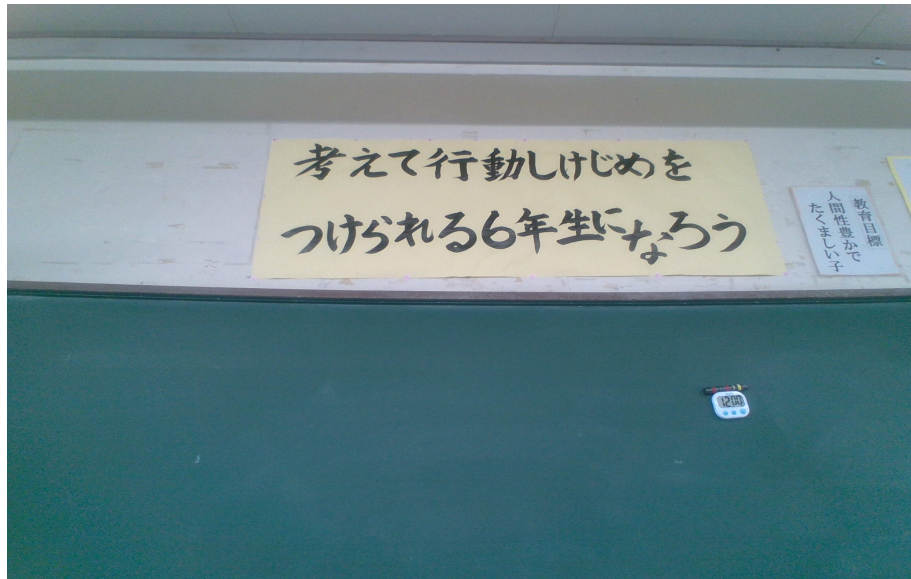 考えて行動しけじめを
つけられる6年生になろう
教育目標
人間性豊かで
たくましい子
1200